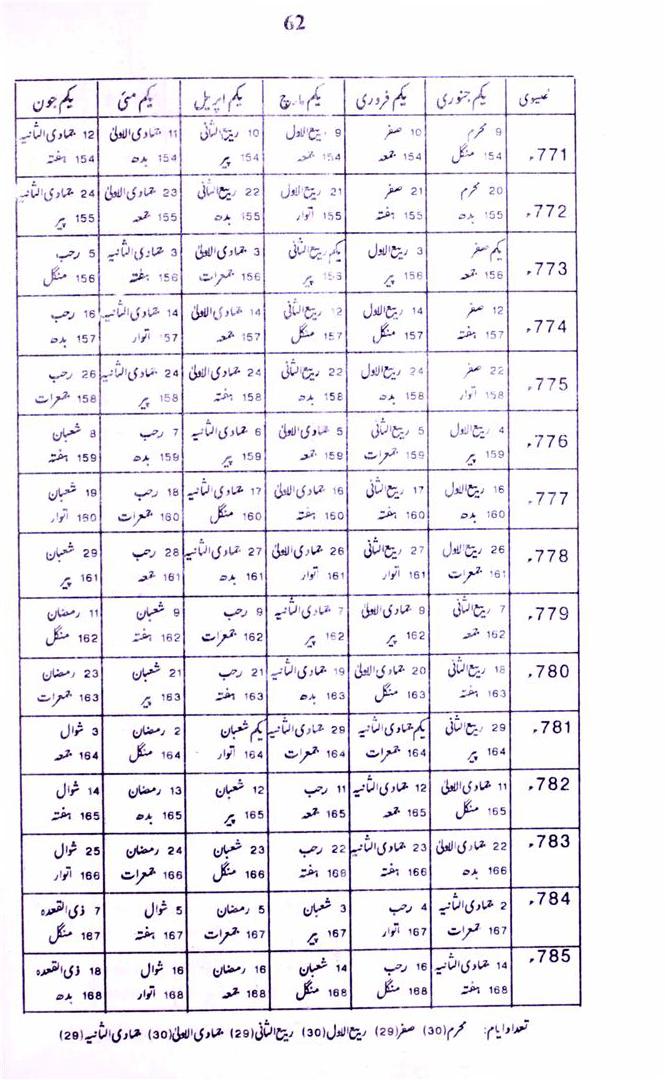 62
عیسوی یکم جنوری یکم فروری یکم مارچ یکم اپریل یکم مئی یکم جون
771ء 9 محرم 10 صفر 9 ربیع الاول 10 ربیع الثانی 11 جمادی الاولیٰ 12 جمادی الثانیہ
154 منگل 154 جمعہ 154 جمعہ 154 پیر 154 بدھ 154 ہفتہ
772ء 20 محرم 21 صفر 21 ربیع الاول 22 ربیع الثانی 23 جمادی الاولیٰ 24 جمادی الثانیہ
155 بدھ 155 ہفتہ 155 اتوار 155 بدھ 155 جمعہ 155 پیر
773ء یکم صفر 3 ربیع الاول یکم ربیع الثانی 3 جمادی الاولیٰ 3 جمادی الثانیہ 5 رجب
156 جمعہ 156 پیر 156 پیر 156 جمعرات 156 ہفتہ 156 منگل
774ء 12 صفر 14 ربیع الاول 12 ربیع الثانی 14 جمادی الاولیٰ 14 جمادی الثانیہ 16 رجب
157 ہفتہ 157 منگل 157 منگل 157 جمعہ 157 اتوار 157 بدھ
775ء 22 صفر 24 ربیع الاول 22 ربیع الثانی 24 جمادی الاولیٰ 24 جمادی الثانیہ 26 رجب
158 اتوار 158 بدھ 158 بدھ 158 ہفتہ 158 پیر 158 جمعرات
776ء 4 ربیع الاول 5 ربیع الثانی 5 جمادی الاولیٰ 6 جمادی الثانیہ 7 رجب 8 شعبان
159 پیر 159 جمعرات 159 جمعہ 159 پیر 159 بدھ 159 ہفتہ
777ء 16 ربیع الاول 17 ربیع الثانی 16 جمادی الاولیٰ 17 جمادی الثانیہ 18 رجب 19 شعبان
160 بدھ 160 ہفتہ 160 ہفتہ 160 منگل 160 جمعرات 160 اتوار
778ء 26 ربیع الاول 27 ربیع الثانی 26 جمادی الاولیٰ 27 جمادی الثانیہ 28 رجب 29 شعبان
161 جمعرات 161 اتوار 161 اتوار 161 بدھ 161 جمعہ 161 پیر
779ء 7 ربیع الثانی 9 جمادی الاولیٰ 7 جمادی الثانیہ 9 رجب 9 شعبان 11 رمضان
162 جمعہ 162 پیر 162 پیر 162 جمعرات 162 ہفتہ 162 منگل
780ء 18 ربیع الثانی 20 جمادی الاولیٰ 19 جمادی الثانیہ 21 رجب 21 شعبان 23 رمضان
163 ہفتہ 163 منگل 163 بدھ 163 ہفتہ 163 پیر 163 جمعرات
781ء 29 ربیع الثانی یکم جمادی الثانیہ 29 جمادی الثانیہ یکم شعبان 2 رمضان 3 شوال
164 پیر 164 جمعرات 164 جمعرات 164 اتوار 164 منگل 164 جمعہ
782ء 11 جمادی الاولیٰ 12 جمادی الثانیہ 11 رجب 12 شعبان 13 رمضان 14 شوال
165 منگل 165 جمعہ 165 جمعہ 165 پیر 165 بدھ 165 ہفتہ
783ء 22 جمادی الاولیٰ 23 جمادی الثانیہ 22 رجب 23 شعبان 24 رمضان 25 شوال
166 بدھ 166 ہفتہ 168 ہفتہ 166 منگل 166 جمعرات 166 اتوار
784ء 2 جمادی الثانیہ 4 رجب 3 شعبان 5 رمضان 5 شوال 7 ذی القعدہ
167 جمعرات 167 اتوار 167 پیر 167 جمعرات 167 ہفتہ 167 منگل
785ء 14 جمادی الثانیہ 16 رجب 14 شعبان 16 رمضان 16 شوال 18 ذی القعدہ
168 ہفتہ 168 منگل 168 منگل 168 جمعہ 168 اتوار 168 بدھ
تعداد ایام: محرم(30) صفر(29) ربیع الاول(30) ربیع الثانی(29) جمادی الاولیٰ(30) جمادی الثانیہ(29)